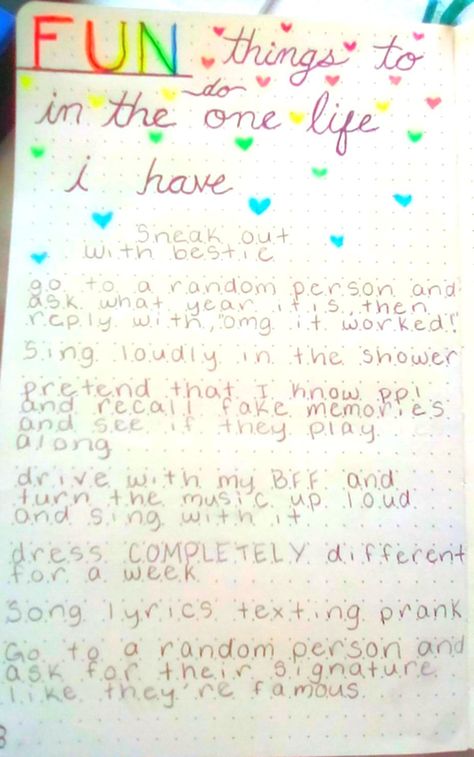 FUN things to
do
in the one life
i have
Sneak out
with bestie
go to a random person and
ask what year it is, then
reply with, "omg it worked!"
Sing loudly in the shower
pretend that I know ppl
and recall fake memories
and see if they play
along
drive with my BFF and
turn the music up loud
and sing with it
dress COMPLETELY different
for a week
Song lyrics texting prank
Go to a random person and
ask for their signature
like they're famous